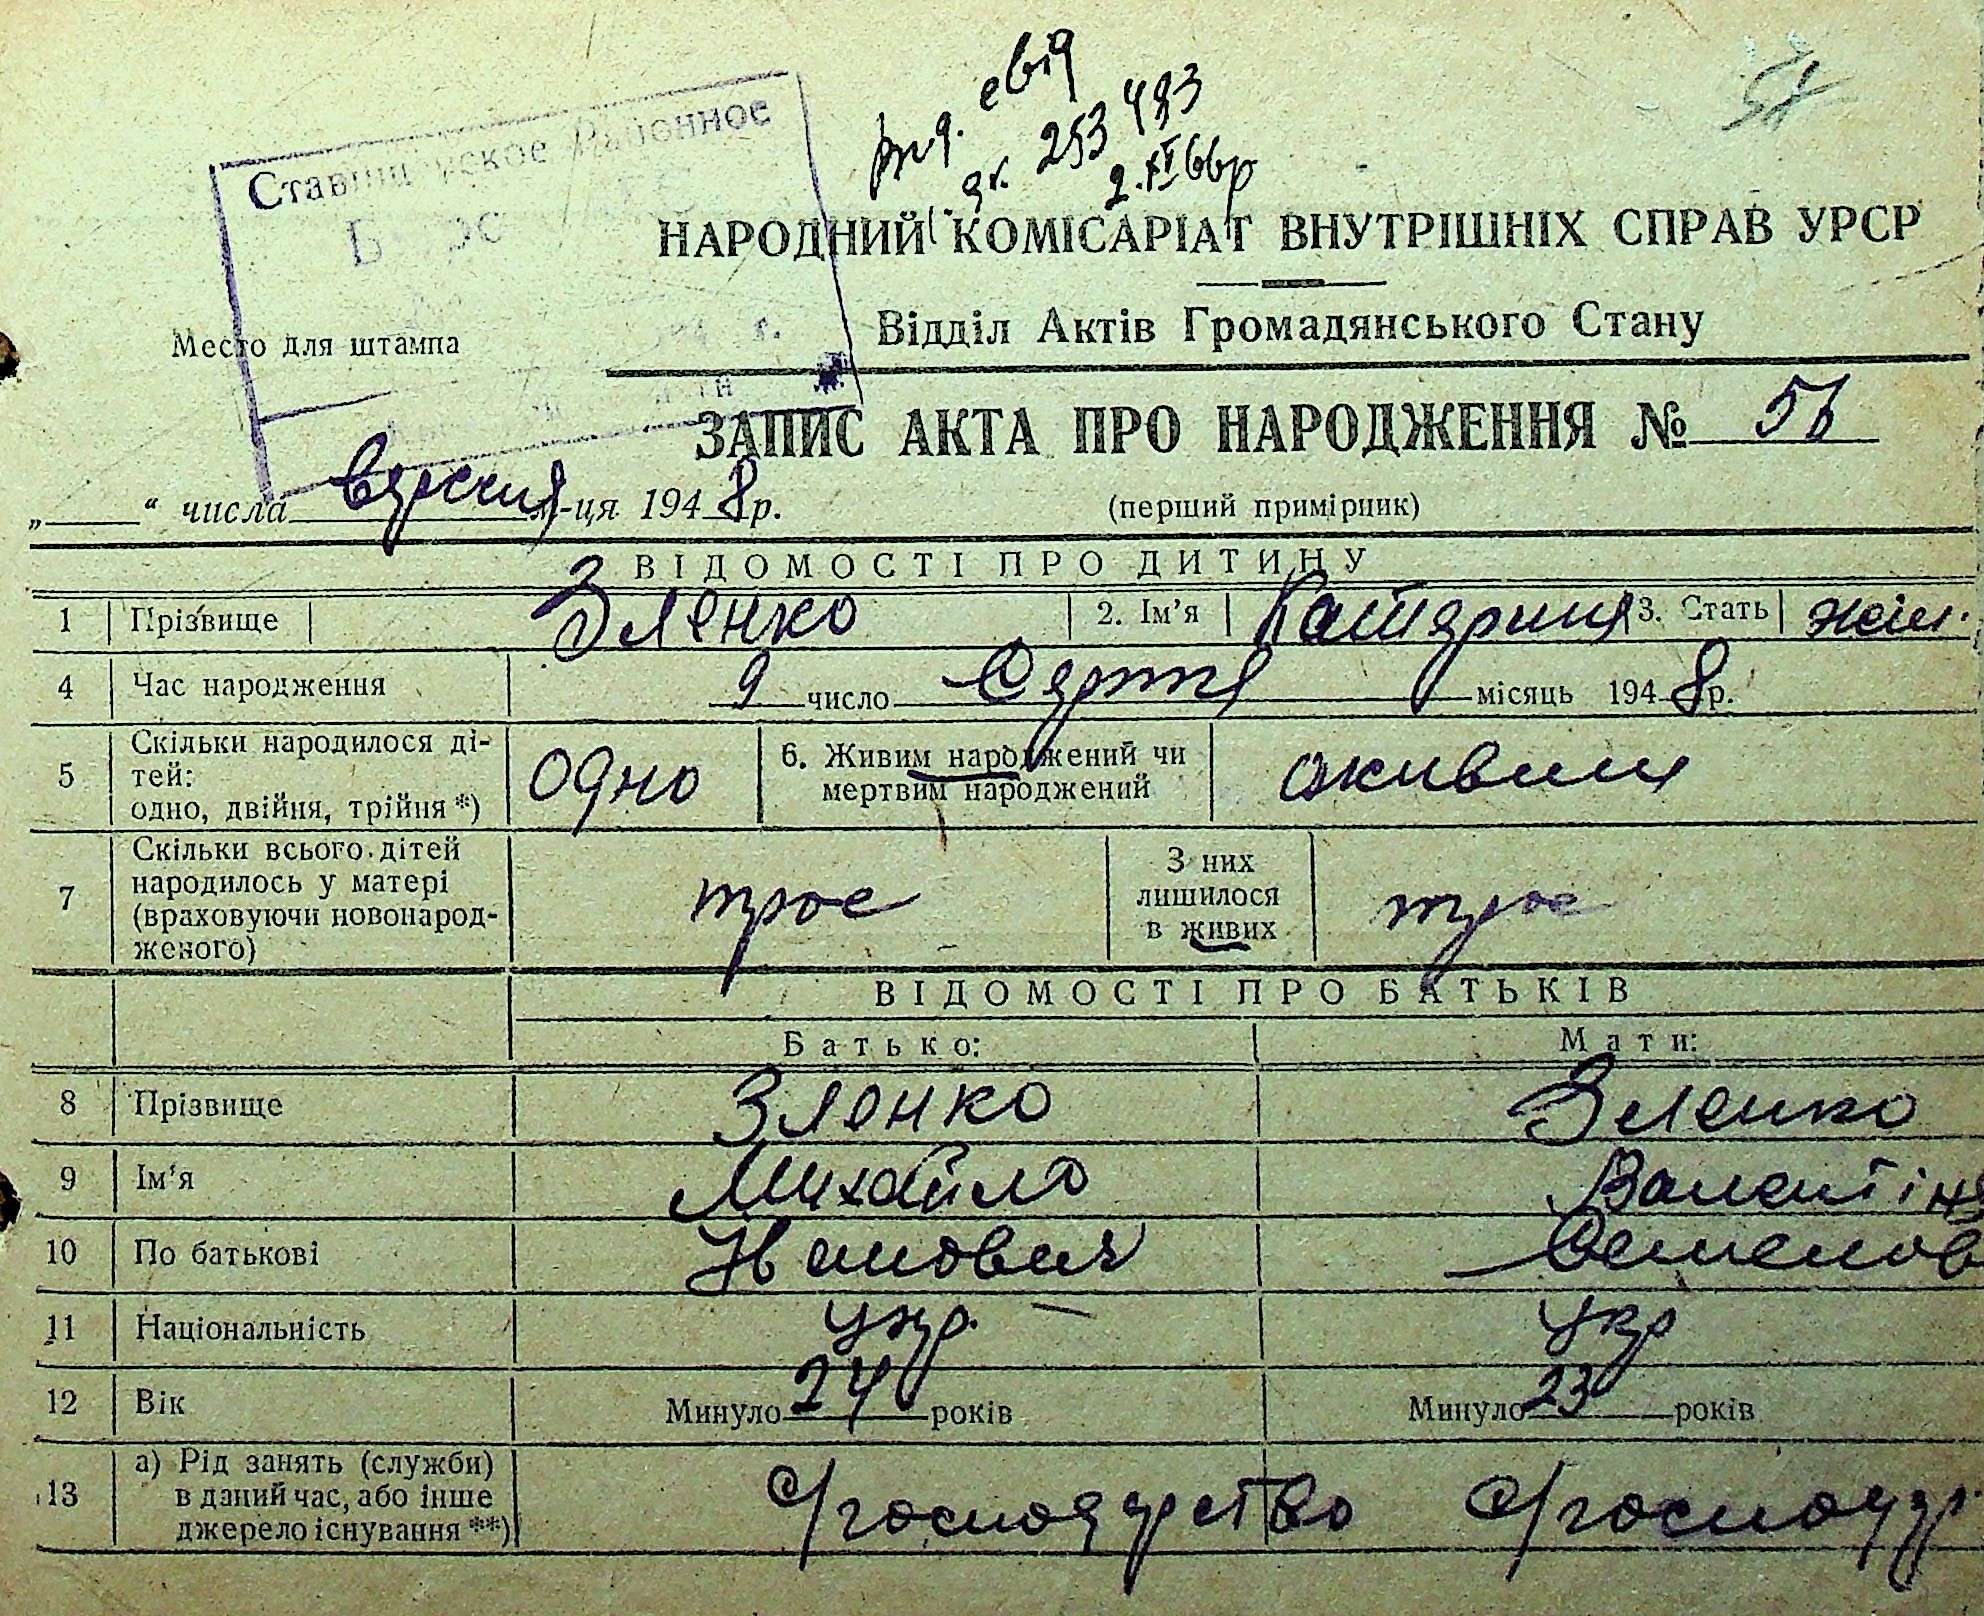 Ставищенское Районное
Бюро
г.
евід
253483
2.XI 66р
НАРОДНИЙ КОМІСАРІАТ ВНУТРІШНІХ СПРАВ УРСР
Відділ Актів Громадянського Стану
Место для штампа
ЗАПИС АКТА ПРО НАРОДЖЕННЯ № 56
„ “ числа вересня м-ця 1948 р.
(перший примірник)
ВІДОМОСТІ ПРО ДИТИНУ
1 Прізвище Зленко 2. Ім’я Катерина 3. Стать жін.
4 Час народження 9 число Серпня місяць 1948 р.
5 Скільки народилося ді-
тей:
одно, двійня, трійня *) одно 6. Живим народжений чи
мертвим народжений живим
7 Скільки всього дітей
народилось у матері
(враховуючи новонарод-
женого) троє З них
лишилося
в живих троє
ВІДОМОСТІ ПРО БАТЬКІВ
Батько: Мати:
8 Прізвище Зленко Зленко
9 Ім’я Михайло Валентіна
10 По батькові Семенов
11 Національність укр. укр
12 Вік Минуло 24 років Минуло 23 років
13 а) Рід занять (служби)
в даний час, або інше
джерело існування **) с/господарство с/господар